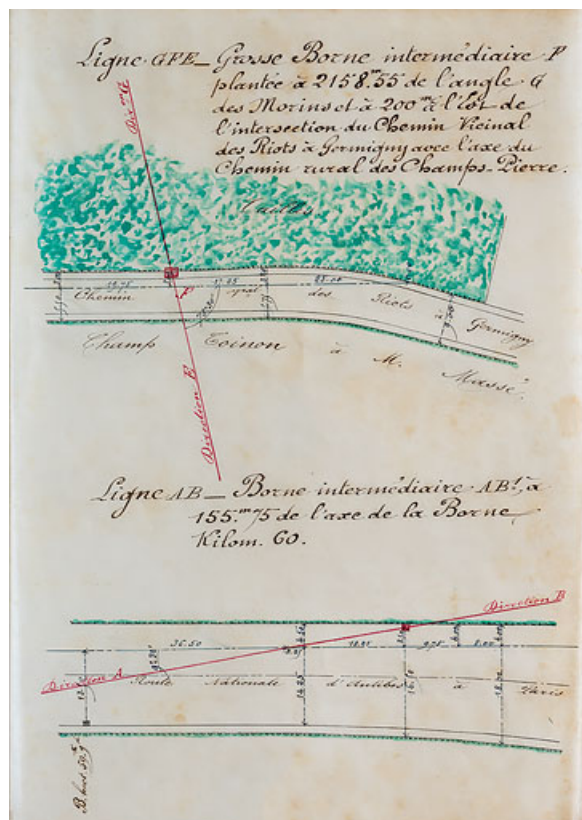 Ligne GFE_ Grosse Borne intermédiaire F
plantée à 2158.m55 de l'angle G
des Morins et à 200 m à l'Est de
l'intersection du Chemin Vicinal
des Riots à Germigny avec l'axe du
Chemin rural des Champs-Pierre.
Don G
Taillis
19.75
28.00
Chemin des Riots à Germigny
F
Champ Toinon à M. Massé
Direction E
Ligne AB_ Borne intermédiaire AB1, à
155.m75 de l'axe de la Borne
Kilom. 60.
Direction B
36.50
9.75
Direction A
Route Nationale d'Antibes à Paris